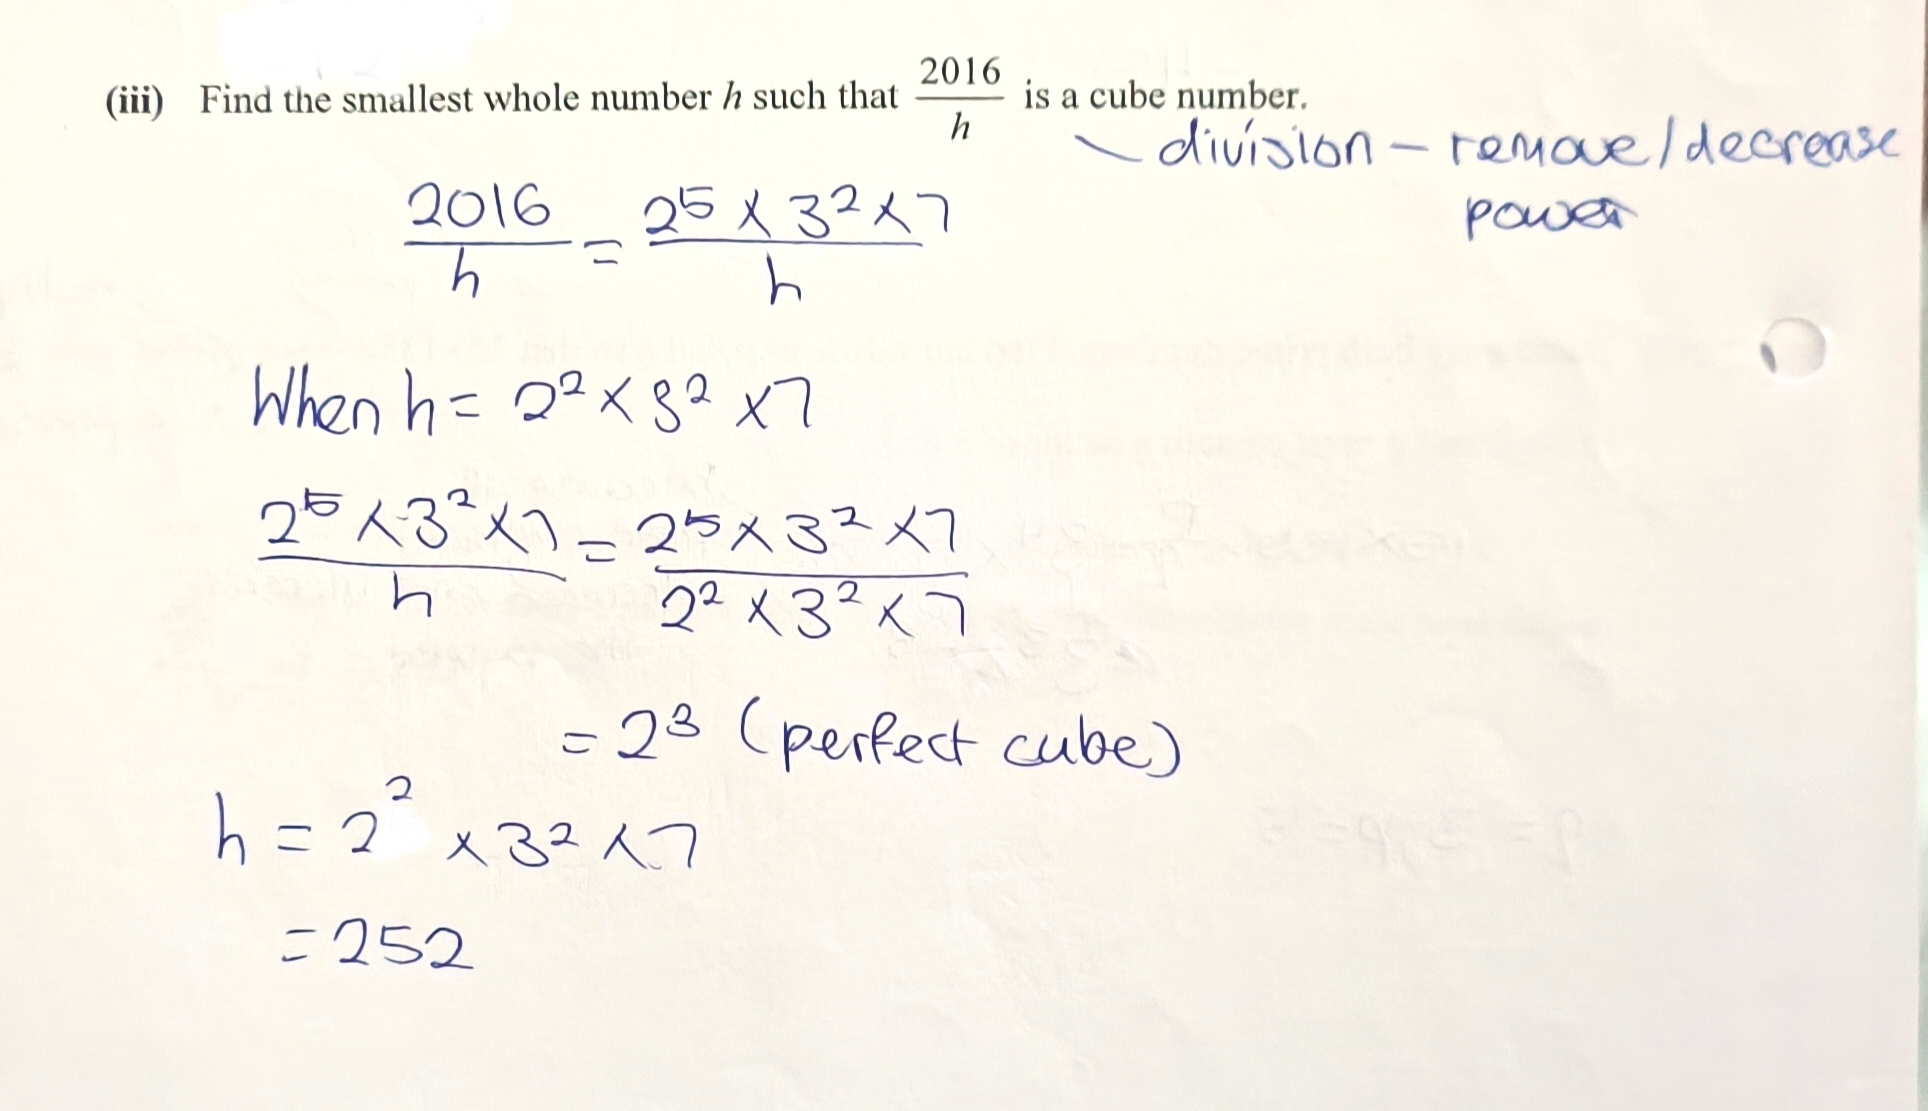 (iii) Find the smallest whole number h such that 2016/h is a cube number.
division – remove/decrease
power
2016/h = 2⁵ × 3² × 7/h
When h = 2² × 3² × 7
2⁵ × 3² × 7/h = 2⁵ × 3² × 7/2² × 3² × 7
= 2³ (perfect cube)
h = 2² × 3² × 7
= 252